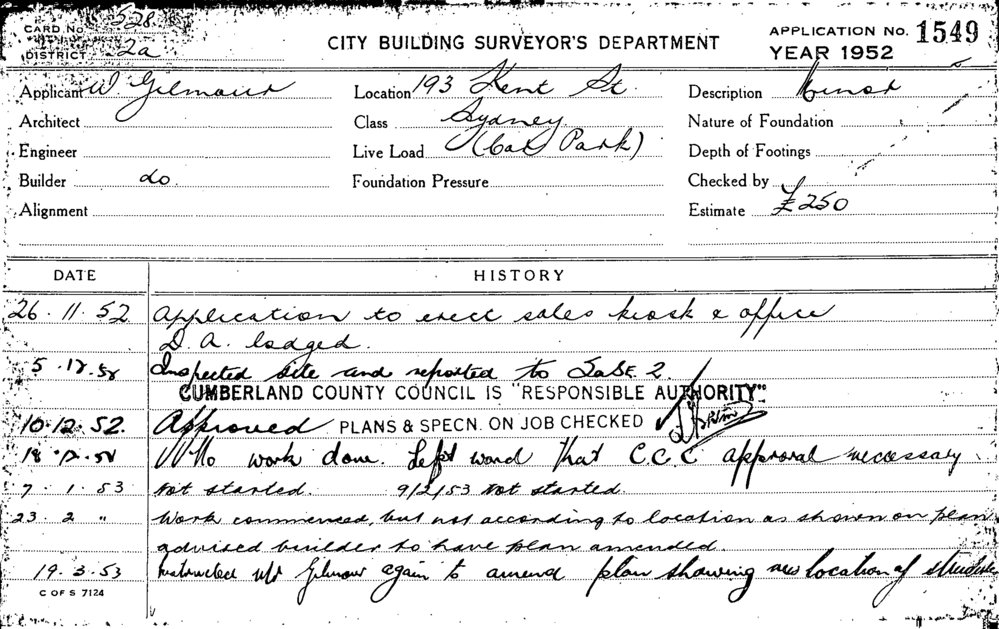 CARD No. 528.
DISTRICT 2a
CITY BUILDING SURVEYOR'S DEPARTMENT
APPLICATION No. 1549
YEAR 1952
Applicant W Gilmour Location 193 Kent St. Description Minor
Architect Class Sydney Nature of Foundation
Engineer Live Load (Car Park) Depth of Footings
Builder do. Foundation Pressure Checked by
Alignment Estimate £250
DATE HISTORY
26.11.52 Application to erect sales kiosk & office
D.A. lodged.
5.12.52 Inspected site and reported to
CUMBERLAND COUNTY COUNCIL IS "RESPONSIBLE AUTHORITY".
10.12.52. Approved PLANS & SPECN. ON JOB CHECKED
18.12.52 No work done. Left word that C.C.C approval necessary
7.1.53 Not started. 9/2/53 Not started.
23.2 " Work commenced, but not according to location as shown on plan
advised builder to have plan amended.
19.3.53 Instructed Mr Gilmour again to amend plan showing new location of structure
C OF S 7124